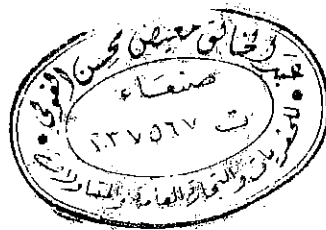 عبد الخالق معيض محسن
صنعاء
ت ٢٣٧٥٦٧
للحفريات والتجارة العامة والمقاولات